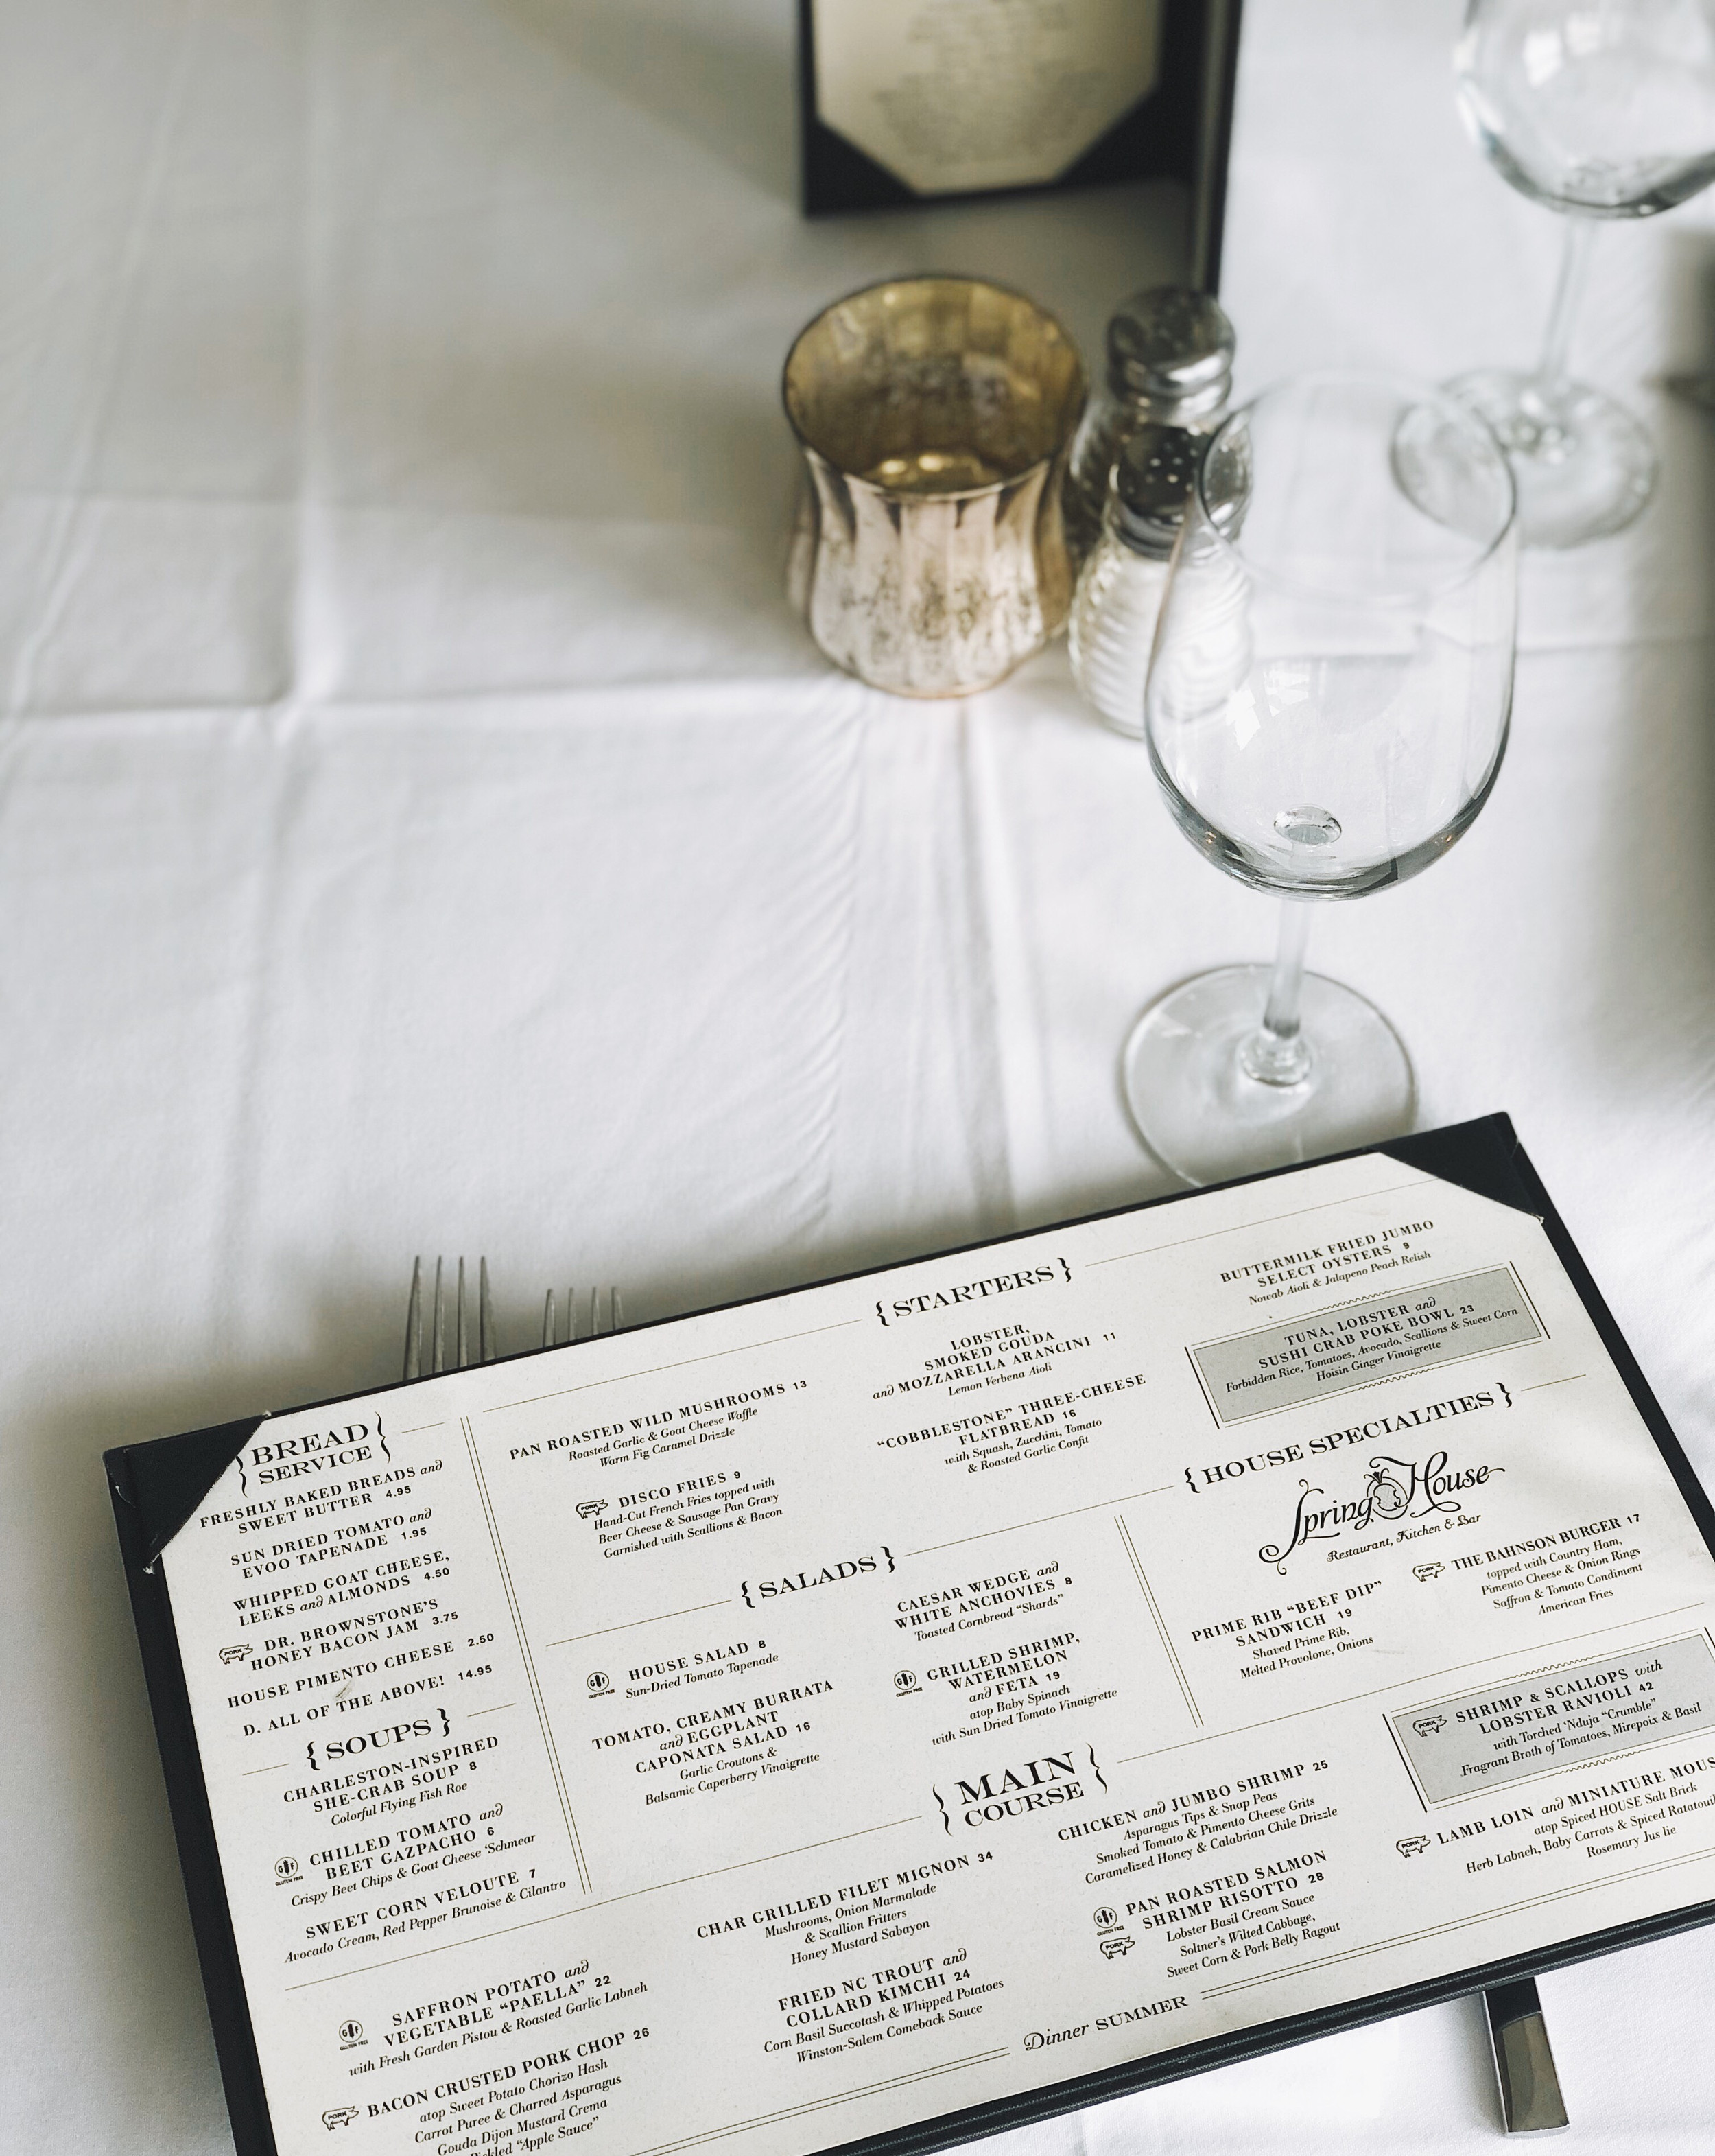 {BREAD
SERVICE}
FRESHLY BAKED BREADS and
SWEET BUTTER 4.95
SUN DRIED TOMATO and
EVOO TAPENADE 1.95
WHIPPED GOAT CHEESE,
LEEKS and ALMONDS 4.50
PORK
DR. BROWNSTONE'S
HONEY BACON JAM 3.75
HOUSE PIMENTO CHEESE 2.50
D. ALL OF THE ABOVE! 14.95
{SOUPS}
CHARLESTON-INSPIRED
SHE-CRAB SOUP 8
Colorful Flying Fish Roe
GF
GLUTEN FREE
CHILLED TOMATO and
BEET GAZPACHO 6
Crispy Beet Chips & Goat Cheese 'Schmear
SWEET CORN VELOUTE 7
Avocado Cream, Red Pepper Brunoise & Cilantro
{STARTERS}
PAN ROASTED WILD MUSHROOMS 13
Roasted Garlic & Goat Cheese Waffle
Warm Fig Caramel Drizzle
PORK
DISCO FRIES 9
Hand-Cut French Fries topped with
Beer Cheese & Sausage Pan Gravy
Garnished with Scallions & Bacon
LOBSTER,
SMOKED GOUDA
and MOZZARELLA ARANCINI 11
Lemon Verbena Aioli
"COBBLESTONE" THREE-CHEESE
FLATBREAD 16
with Squash, Zucchini, Tomato
& Roasted Garlic Confit
BUTTERMILK FRIED JUMBO
SELECT OYSTERS 9
Nowab Aioli & Jalapeno Peach Relish
TUNA, LOBSTER and
SUSHI CRAB POKE BOWL 23
Forbidden Rice, Tomatoes, Avocado, Scallions & Sweet Corn
Hoisin Ginger Vinaigrette
{SALADS}
GF
GLUTEN FREE
HOUSE SALAD 8
Sun-Dried Tomato Tapenade
TOMATO, CREAMY BURRATA
and EGGPLANT
CAPONATA SALAD 16
Garlic Croutons &
Balsamic Caperberry Vinaigrette
CAESAR WEDGE and
WHITE ANCHOVIES 8
Toasted Cornbread "Shards"
GF
GLUTEN FREE
GRILLED SHRIMP,
WATERMELON
and FETA 19
atop Baby Spinach
with Sun Dried Tomato Vinaigrette
{HOUSE SPECIALTIES}
Spring House
Restaurant, Kitchen & Bar
PRIME RIB "BEEF DIP"
SANDWICH 19
Shaved Prime Rib,
Melted Provolone, Onions
PORK
THE BAHNSON BURGER 17
topped with Country Ham,
Pimento Cheese & Onion Rings
Saffron & Tomato Condiment
American Fries
{MAIN
COURSE}
GF
GLUTEN FREE
SAFFRON POTATO and
VEGETABLE "PAELLA" 22
with Fresh Garden Pistou & Roasted Garlic Labneh
PORK
BACON CRUSTED PORK CHOP 26
atop Sweet Potato Chorizo Hash
Carrot Puree & Charred Asparagus
Gouda Dijon Mustard Crema
"Apple Sauce"
CHAR GRILLED FILET MIGNON 34
Mushrooms, Onion Marmalade
& Scallion Fritters
Honey Mustard Sabayon
FRIED NC TROUT and
COLLARD KIMCHI 24
Corn Basil Succotash & Whipped Potatoes
Winston-Salem Comeback Sauce
CHICKEN and JUMBO SHRIMP 25
Asparagus Tips & Snap Peas
Smoked Tomato & Pimento Cheese Grits
Caramelized Honey & Calabrian Chile Drizzle
GF
GLUTEN FREE
PORK
PAN ROASTED SALMON
SHRIMP RISOTTO 28
Lobster Basil Cream Sauce
Soltner's Wilted Cabbage,
Sweet Corn & Pork Belly Ragout
PORK
SHRIMP & SCALLOPS with
LOBSTER RAVIOLI 42
with Torched 'Nduja "Crumble"
Fragrant Broth of Tomatoes, Mirepoix & Basil
PORK
LAMB LOIN and MINIATURE MOUS
atop Spiced HOUSE Salt Brick
Herb Labneh, Baby Carrots & Spiced Ratatouil
Rosemary Jus lie
Dinner SUMMER